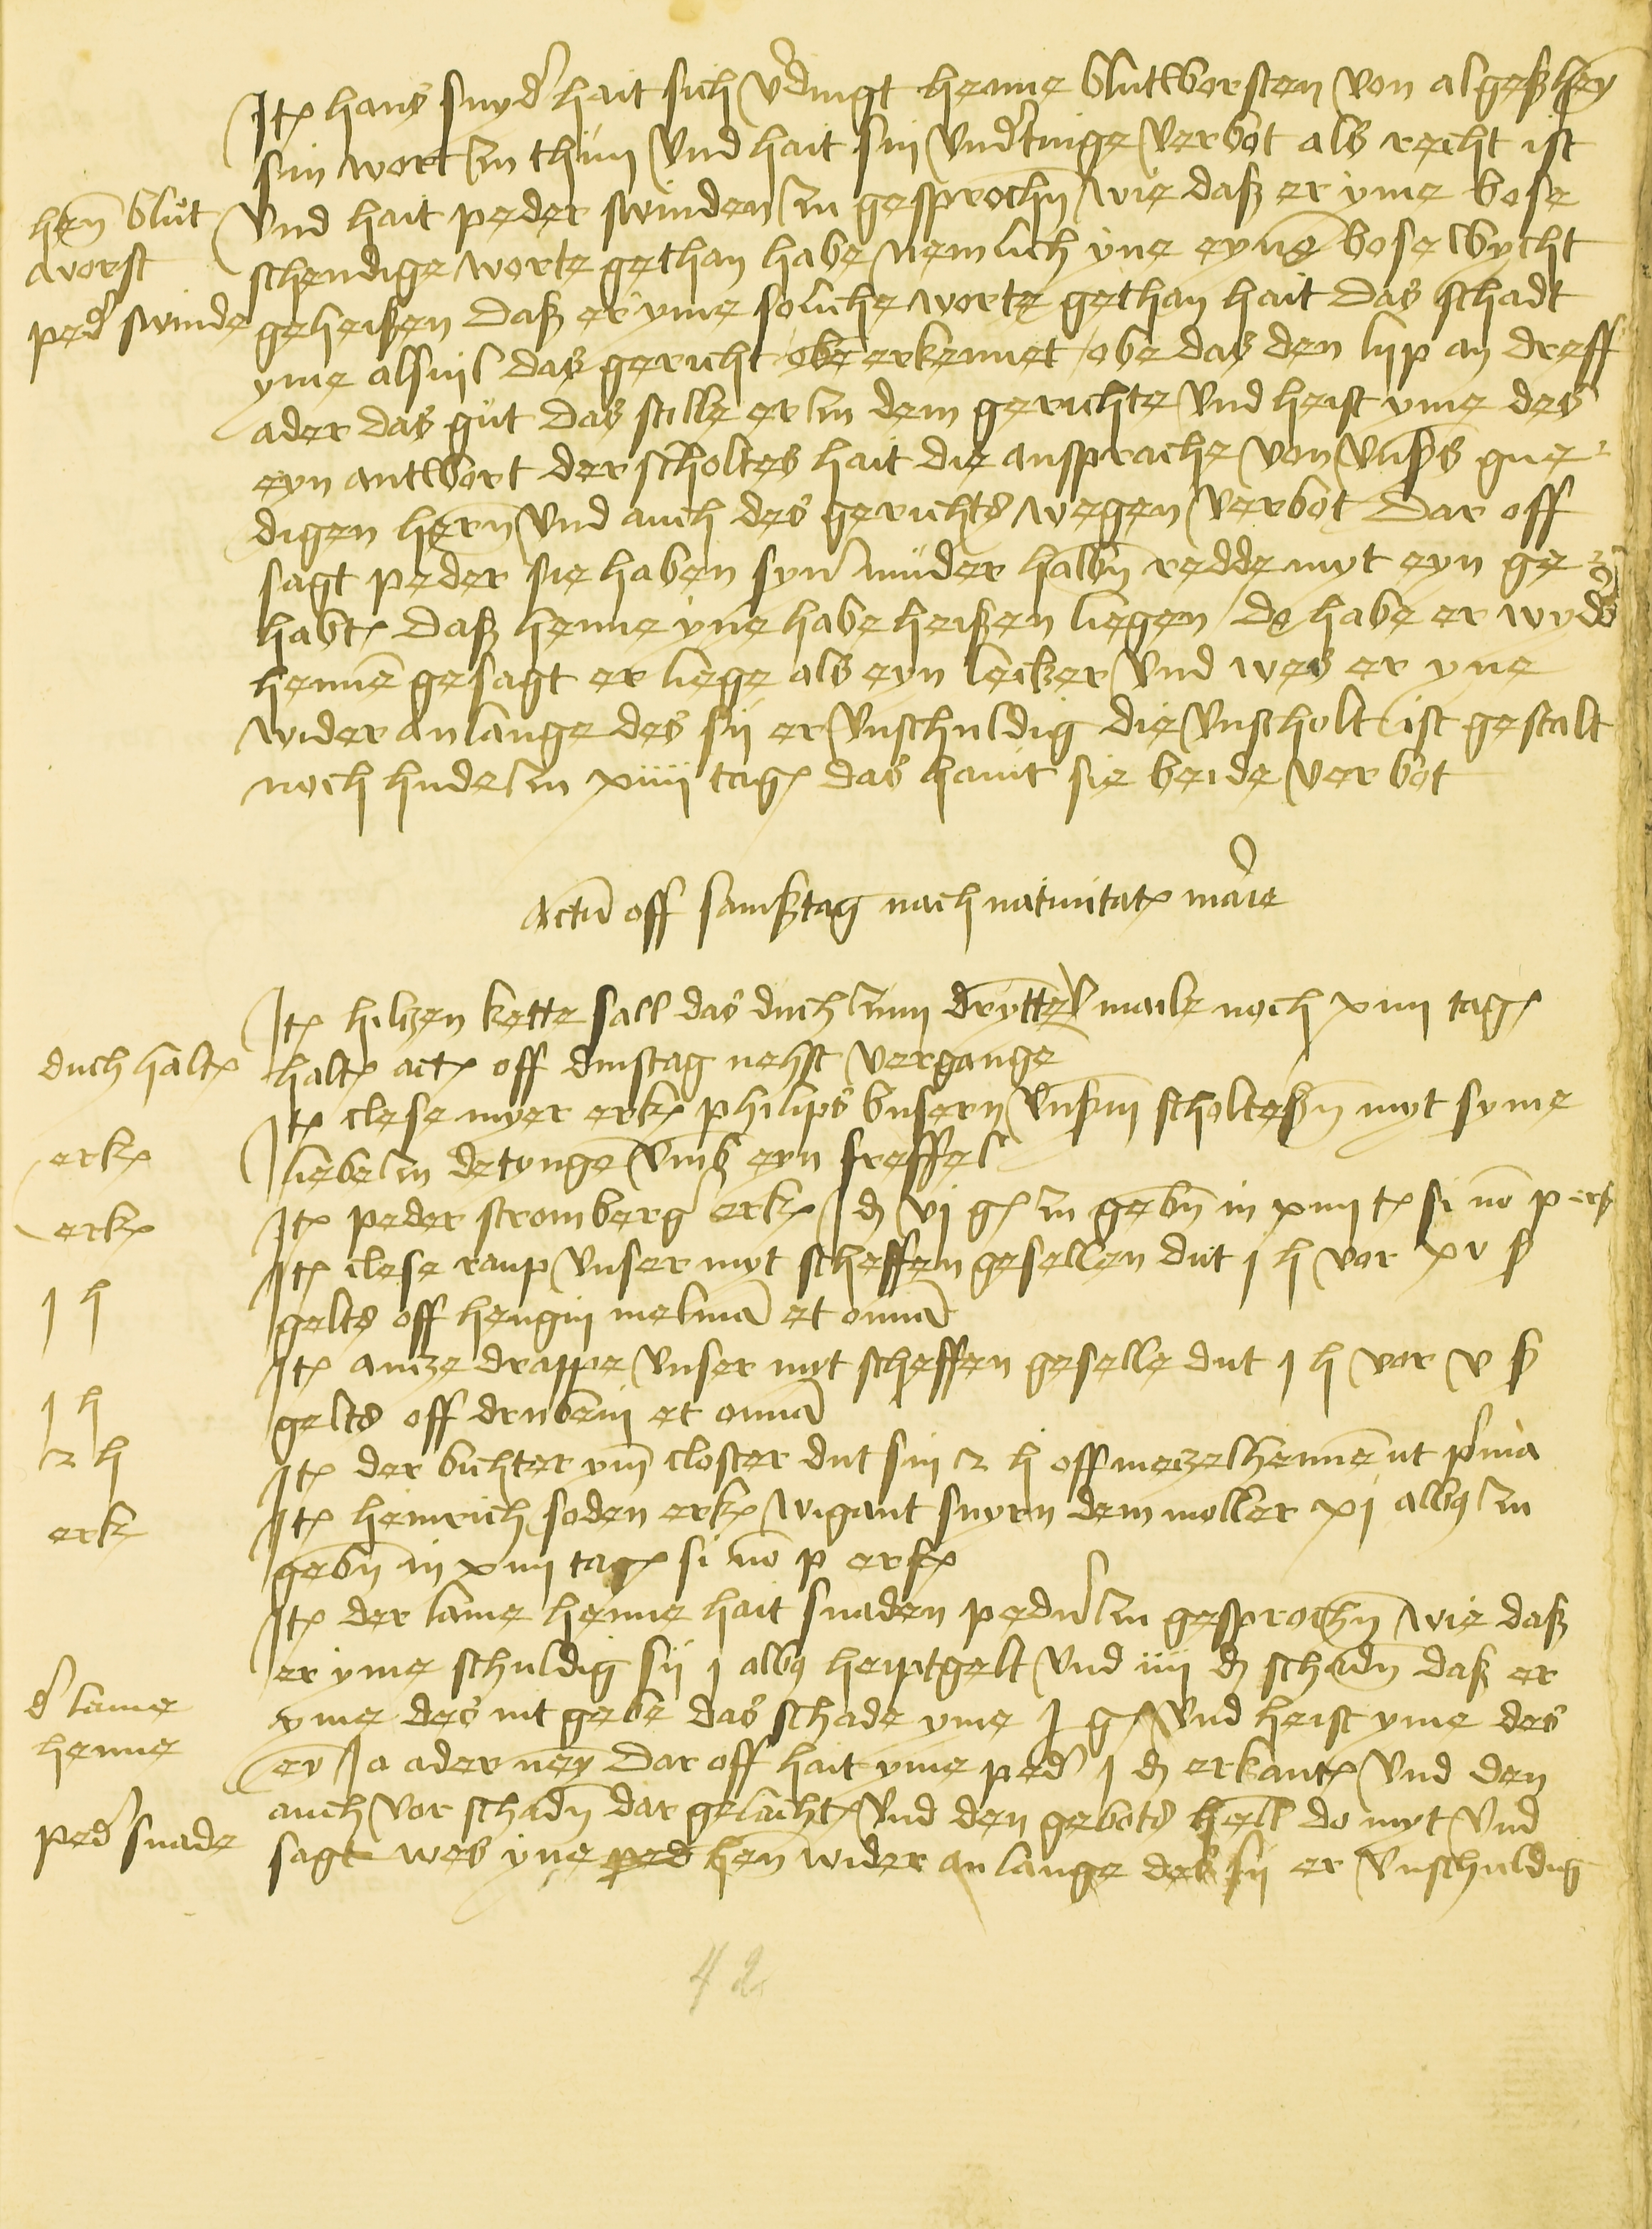 Jt(em) hans snyd(er) hait sich v(er)dingt henne blutworsten von algeßhey
sin wort zu thün vnd hait sin vnd(er)tinge verbot als recht ist
hen(ne) blut
worst
vnd hait peder swinden zu gesproch(e)n wie daß er yme bose
schendige worte gethan habe nemlich yne eyne(n) bosewycht
ped(er) swinde
geheißen daß er yme soliche worte gethan hait das schadt
yme alsuil das gericht obe erkennet obe das den lijp an dreff
ader das gut das stille er zu dem gerichte vnd heist yme des
eyn antwort der scholtes hait die ansprache von vns(er)s gne
digen hern vnd auch des gerichts wegen verbot dar off
sagt peder sie haben syner müder halb(e)n redde myt eyn ge
habt(en) daß henne yne habe heißen liegen do habe er wyd(er)
henne(n) gesagt er liege als eyn lecker vnd wes er yne
wider anlange des sij er vnschuldig die vnscholt ist gestalt
noch hude zu xiiij tag(en) das haint sie beide verbot
Actu(m) off samßtag nach natiuitat(is) marie
Jt(em) hiltzen kette sall das duch zum drytte(n) maile noch xiiij tag(e)
duch halt(en)
halt(en) act(um) off dinstag nehst vergange(n)
Jt(em) clese myer erk(ennt) philips busern vns(er)m scholteß(e)n myt syme
erk(ennt)
liebe zu detynge(n) vmb eyn freffel
Jt(em) peder stromberg(er) erk(ennt) J d vj g(ulden) zu geb(e)n in xiiij t(agen) si no(n) p erf
erk(ennt)
Jt(em) clese raup vnser myt scheffen gesellen dut j h vor xv ß
j h
gelts off hengin melma(n) et o(mn)ia
Jt(em) antze drappe vnser myt scheffen geselle dut j h vor v ß
j h
gelts off drubein et o(mn)ia
Jt(em) der bichter ym closter dut sin 2 h off metzelhenne(n) ut p(ri)ma
2 h
Jt(em) heinrich soden erk(ennt) wigant snyern dem moller xj alb(us) zu
erk
geb(e)n in xiiij tag(en) si no(n) p erf(olgt)
Jt(em) der lame henne hait snaden peder zu gesproch(e)n wie daß
er yme schuldig sij j alb(us) heiptgelt vnd iiij d schad(e)n daß er
d(er) lame
henne
yme des nit gebe das schade yme J g(ulden) vnd heist yme des
ey(n) Ja ader ney(n) dar off hait yme ped(er) j d erkant(en) vnd den
auch vor schad(e)n dar gelacht(en) vnd den gebots helt do myt vnd
ped(er) snade
sagt wes yne ped hen(ne) wider anlange des sij er vnschuldig
42